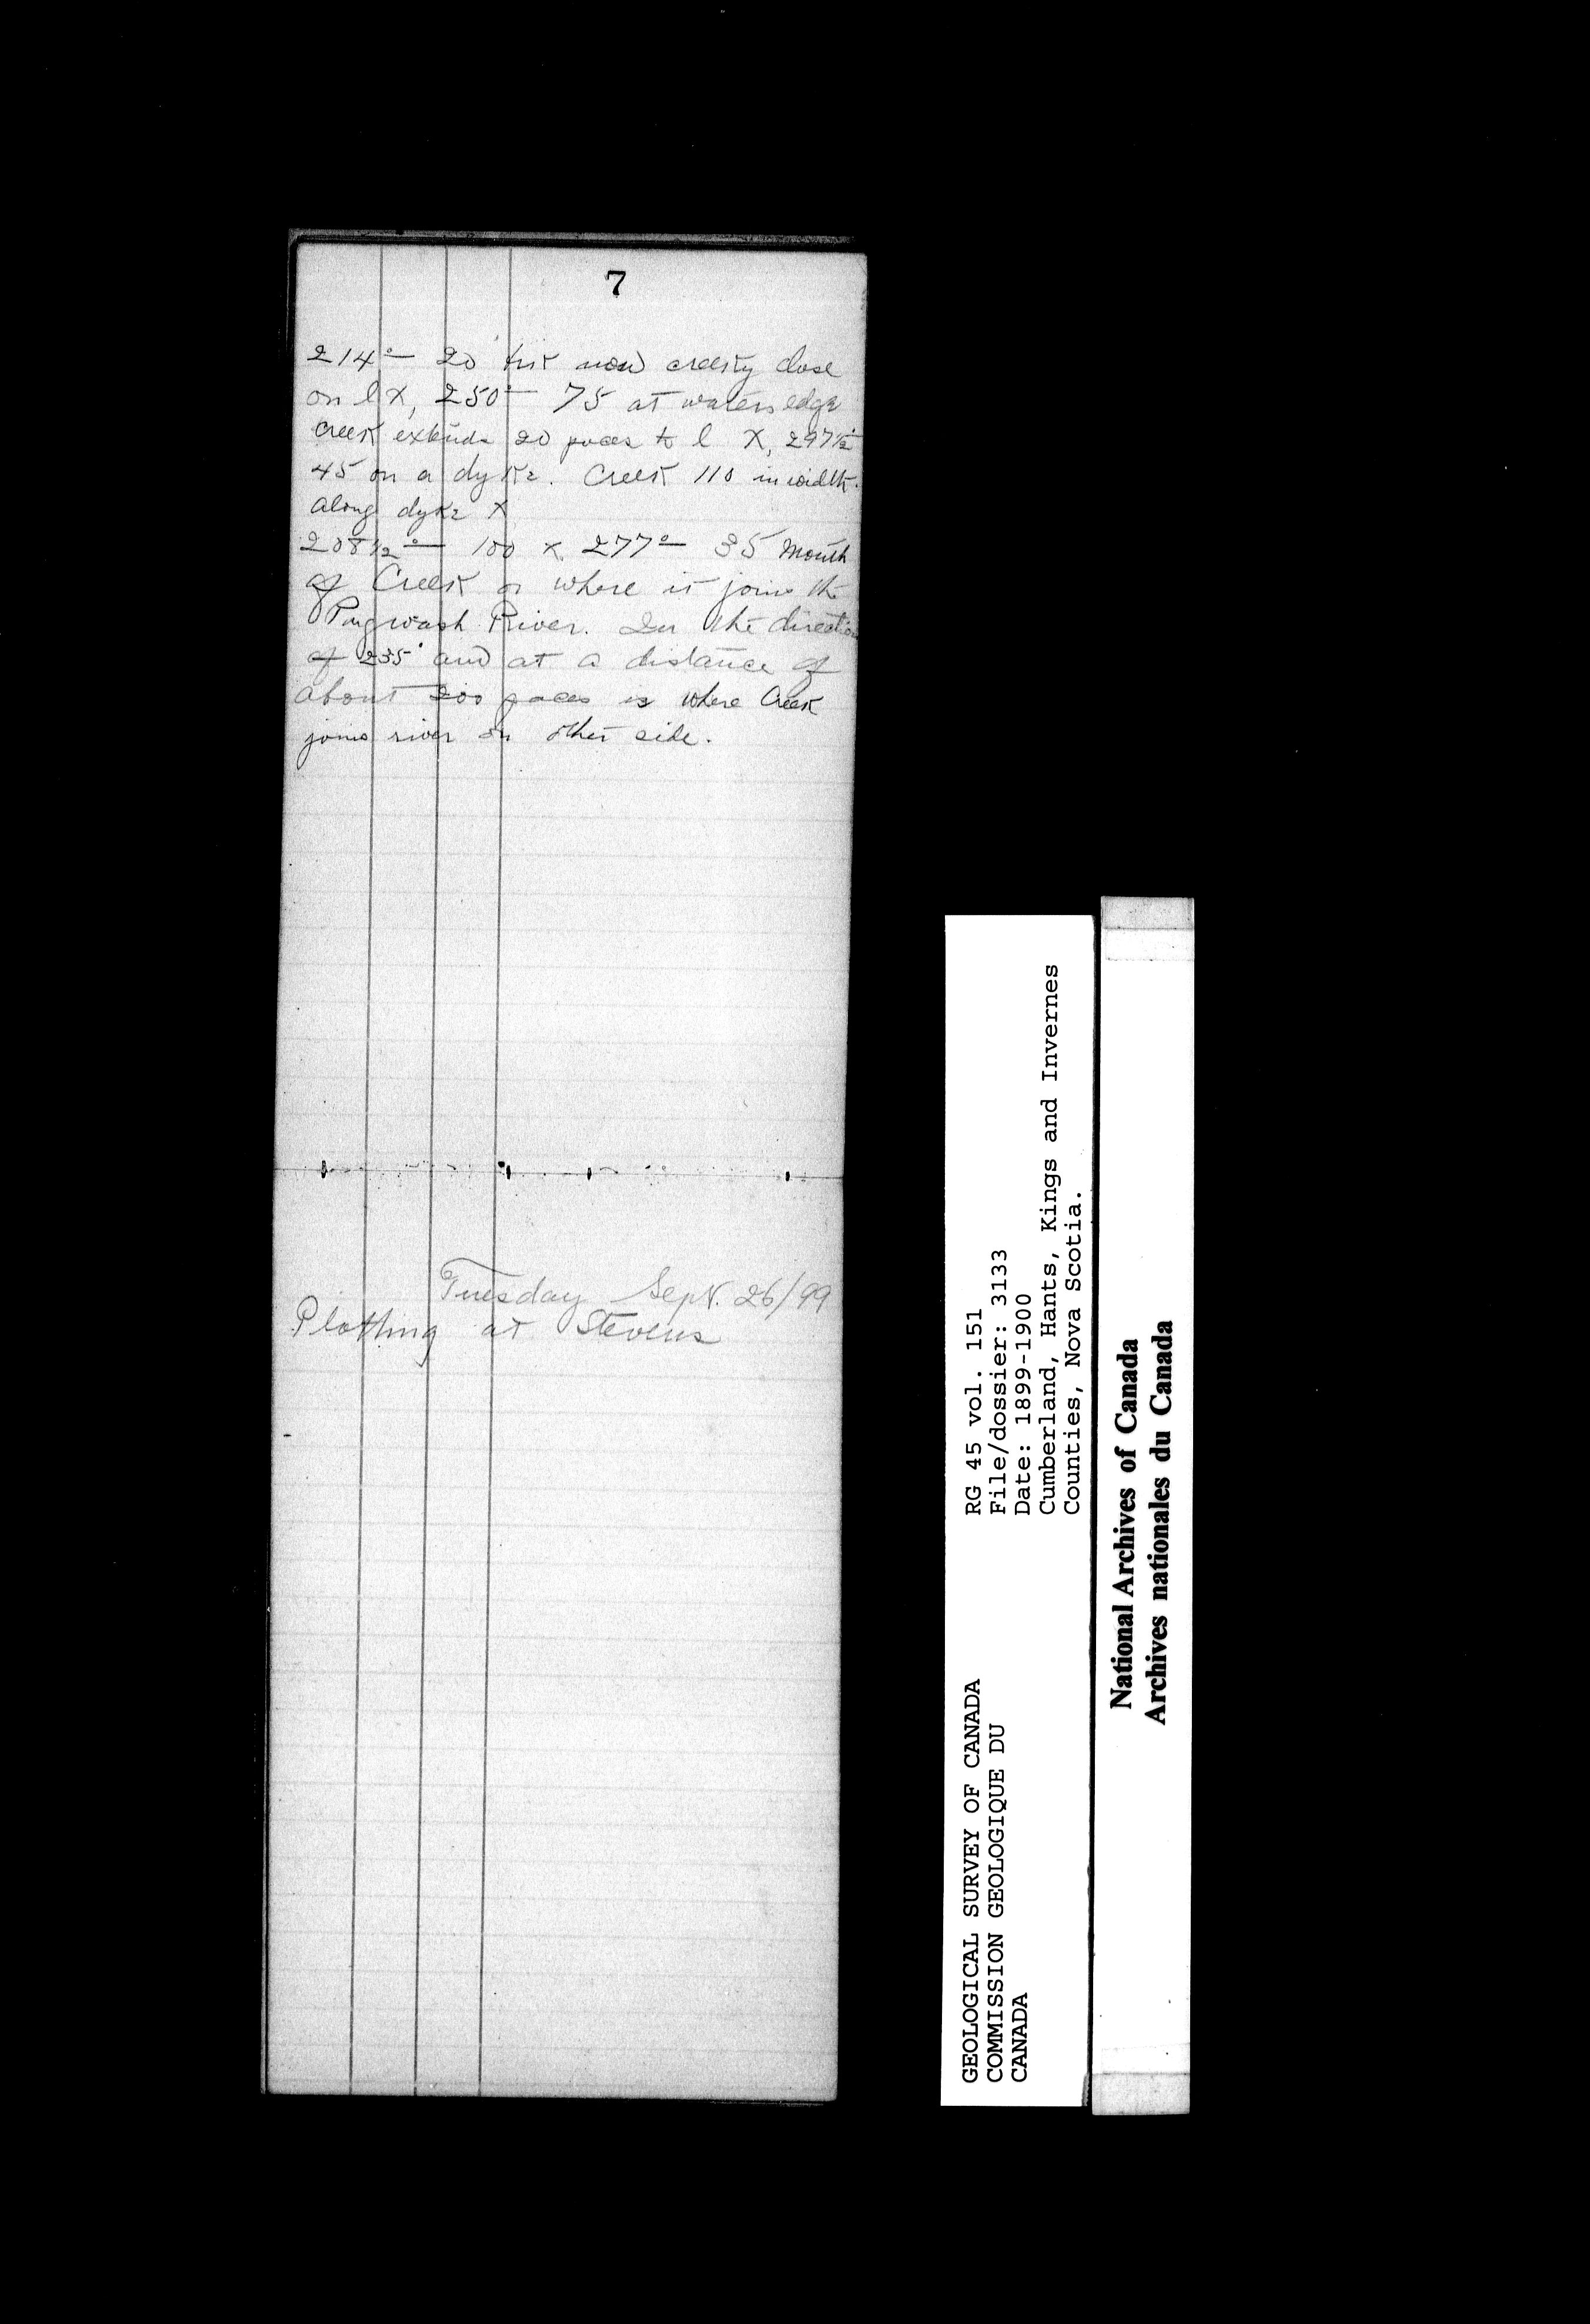 7
214° — 20 now close
on l X, 250° — 75 at waters edge
Creek extends 20 paces to l X, 297½°
45 on a dyke. Creek 110 in width.
along dyke X
208½° — 100 X 277° — 35 Mouth
of Creek or where it joins the
Pugwash River. In the direction
of 235° and at a distance of
about 200 paces is where Creek
joins river on other side.
Tuesday Sept. 26/99
Plotting at Stevens
RG 45 vol. 151
File/dossier: 3133
Date: 1899-1900
Cumberland, Hants, Kings and Invernes
Counties, Nova Scotia.
GEOLOGICAL SURVEY OF CANADA
COMMISSION GEOLOGIQUE DU
CANADA
National Archives of Canada
Archives nationales du Canada